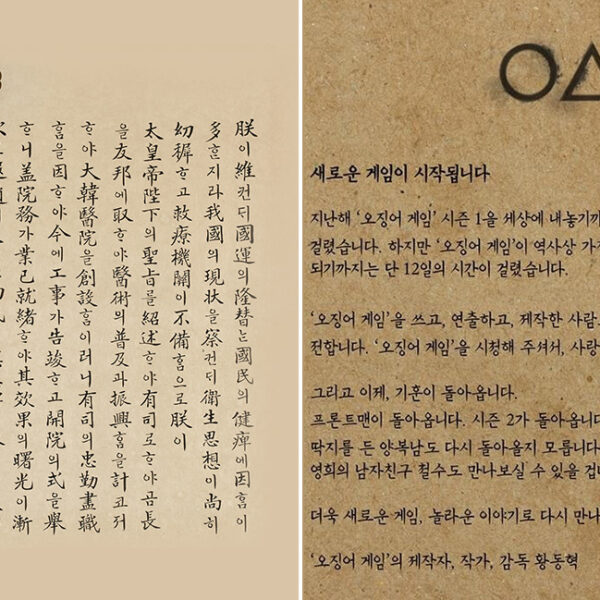 朕이維컨ᄃᆡ國運의隆替ᄂᆞᆫ國民의健痺에因홈이
多ᄒᆞᆫ지라我國의現状을察컨ᄃᆡ衛生思想이尚히
幼穉ᄒᆞ고救療機關이不備홈으로朕이
太皇帝陛下의聖旨를紹述ᄒᆞ야有司로ᄒᆞ야곰長
을友邦에取ᄒᆞ야醫術의普及과振興홈을計코져
ᄒᆞ야大韓醫院을創設홈이러니有司의忠勤盡職
홈을因ᄒᆞ야今에工事가告竣ᄒᆞ고開院의式을舉
ᄒᆞ니盖院務가業已就緒ᄒᆞ야其效果의曙光이漸
새로운 게임이 시작됩니다
지난해 ‘오징어 게임’ 시즌 1을 세상에 내놓기까
걸렸습니다. 하지만 ‘오징어 게임’이 역사상 가
되기까지는 단 12일의 시간이 걸렸습니다.
‘오징어 게임’을 쓰고, 연출하고, 제작한 사람
전합니다. ‘오징어 게임’을 시청해 주셔서, 사랑
그리고 이제, 기훈이 돌아옵니다.
프론트맨이 돌아옵니다. 시즌 2가 돌아옵니다
딱지를 든 양복남도 다시 돌아올지 모릅니다
영희의 남자친구 철수도 만나보실 수 있을 겁
더욱 새로운 게임, 놀라운 이야기로 다시 만나
‘오징어 게임’의 제작자, 작가, 감독 황동혁